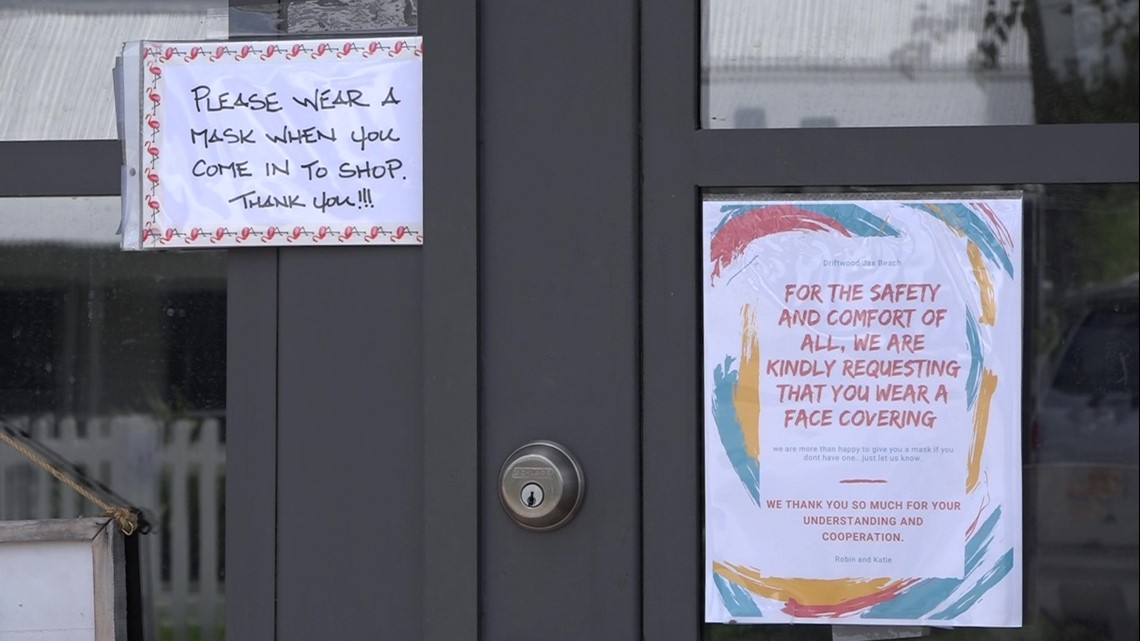 PLEASE WEAR A
MASK WHEN YOU
COME IN TO SHOP.
THANK YOU!!!
Driftwood Jax Beach
FOR THE SAFETY
AND COMFORT OF
ALL, WE ARE
KINDLY REQUESTING
THAT YOU WEAR A
FACE COVERING
we are more than happy to give you a mask if you
dont have one.. just let us know.
WE THANK YOU SO MUCH FOR YOUR
UNDERSTANDING AND
COOPERATION.
Robin and Katie
SCHLAGE